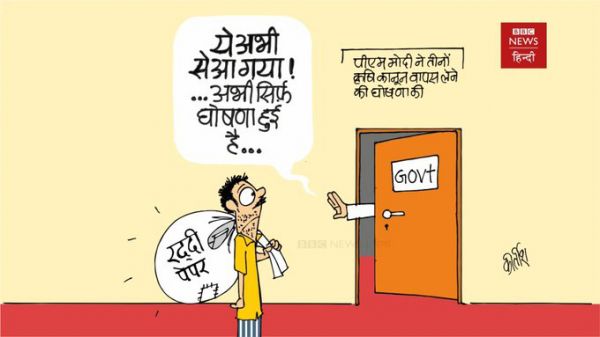 BBC
NEWS
हिन्दी
पीएम मोदी ने तीनों
कृषि कानून वापस लेने
की घोषणा की
ये अभी
से आ गया!
...अभी सिर्फ़
घोषणा हुई
है...
GOVt
रद्दी
पेपर
BBC NEWS हिन्दी
कीर्तीश